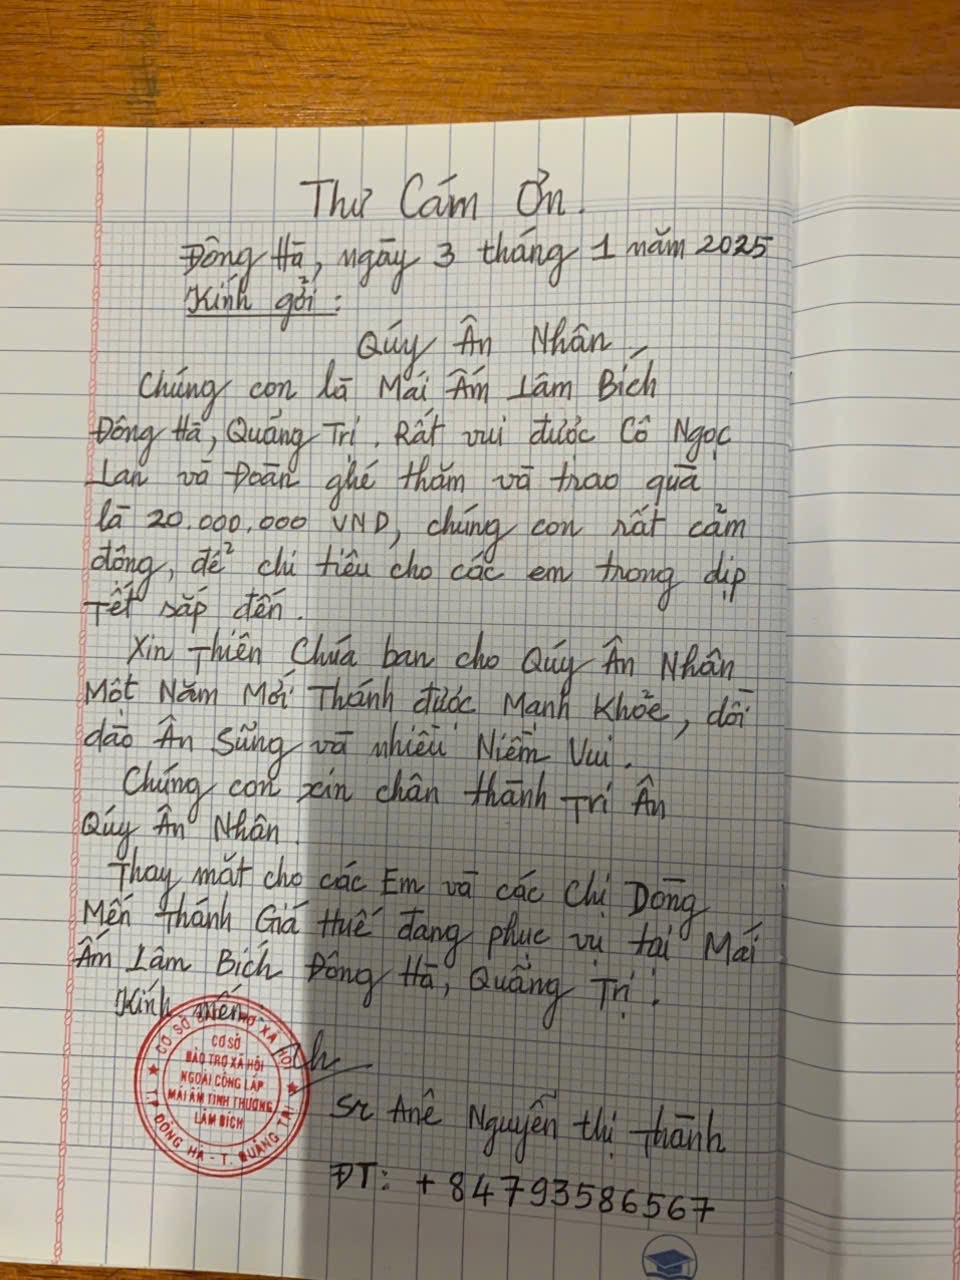 Thư Cám Ơn.
Đông Hà, ngày 3 tháng 1 năm 2025
Kính gởi:
Qúy Ân Nhân,
Chúng con là Mái Ấm Lâm Bích
Đông Hà, Quảng Trị. Rất vui được Cô Ngọc
Lan và Đoàn ghé thăm và trao quà
là 20.000,000 VND, chúng con rất cảm
động, để chi tiêu cho các em trong dịp
Tết sắp đến.
Xin Thiên Chúa ban cho Qúy Ân Nhân
Một Năm Mới Thánh được Mạnh Khỏe, dồi
dào Ân Sũng và nhiều Niềm Vui.
Chúng con xin chân thành Tri Ân
Qúy Ân Nhân.
Thay mặt cho các Em và các Chị Dòng
Mến Thánh Giá Huế đang phục vụ tại Mái
Ấm Lâm Bích Đông Hà, Quảng Trị.
Kính mến
CƠ SỞ XÃ HỘI
CƠ SỞ
BẢO TRỢ XÃ HỘI
NGOÀI CÔNG LẬP
MÁI ẤM TÌNH THƯƠNG
LÂM BÍCH
T.P ĐÔNG HÀ - T. QUẢNG TRỊ
Sr Anê Nguyễn thị Thành
ĐT: +84793586567